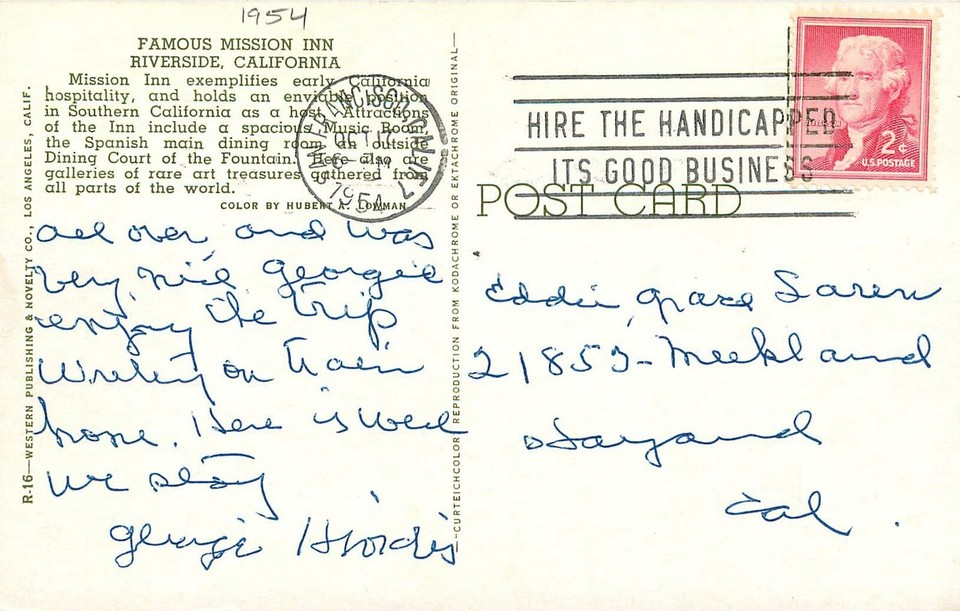 1954
FAMOUS MISSION INN
RIVERSIDE, CALIFORNIA
Mission Inn exemplifies early California
hospitality, and holds an enviable position
in Southern California as a host. Attractions
of the Inn include a spacious Music Room,
the Spanish main dining room an outside
Dining Court of the Fountain. Here also are
galleries of rare art treasures gathered from
all parts of the world.
COLOR BY HUBERT A. LOWMAN
R-16—WESTERN PUBLISHING & NOVELTY CO., LOS ANGELES, CALIF.
all over, and was
very nice Georgie
enjoy the trip
on train
home. Here is
we stay
Georgie
—CURTEICHCOLOR REPRODUCTION FROM KODACHROME OR EKTACHROME ORIGINAL—
SAN FRANCISCO, CALIF.
OCT 17
PM
1954
HIRE THE HANDICAPPED
ITS GOOD BUSINESS
2¢
U.S. POSTAGE
POST CARD
Eddie, Grace
Meekland
Cal.